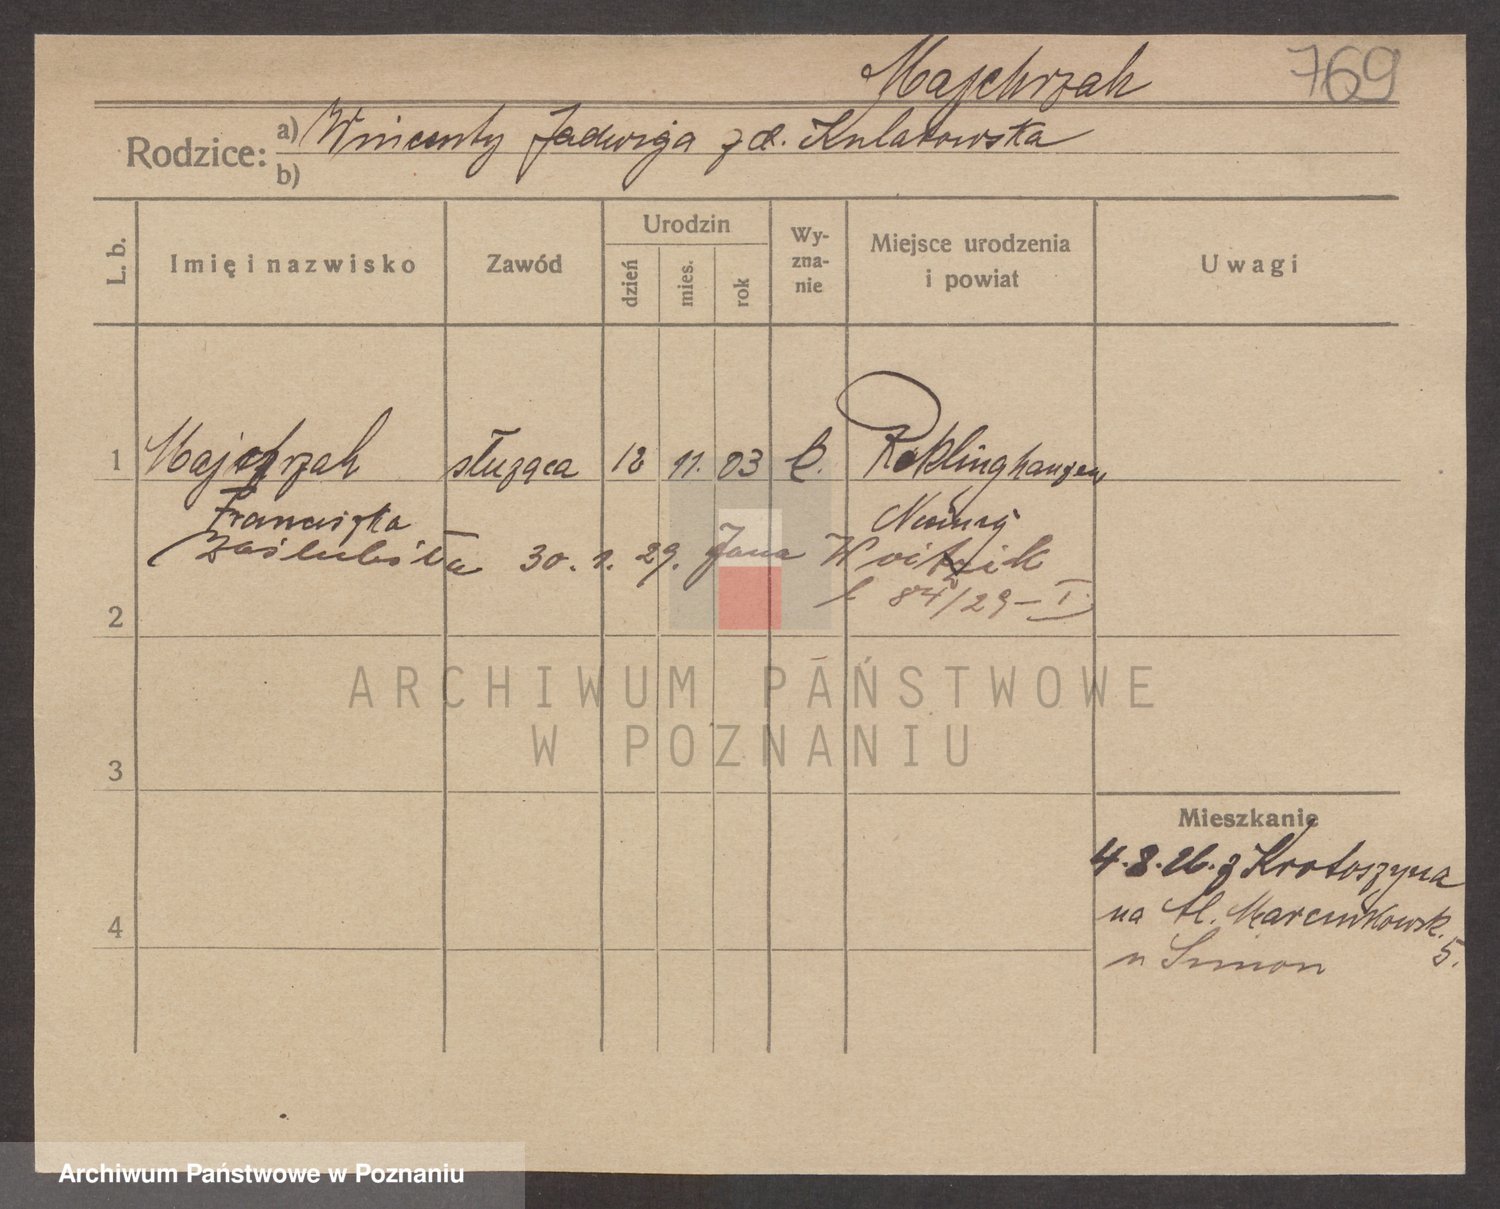 Majchrzak 769
Rodzice: a) Wincenty Jadwiga z d. Kulakowska
b)
L. b. Imię i nazwisko Zawód Urodzin dzień mies. rok Wy-zna-nie Miejsce urodzenia i powiat Uwagi
1 Majchrzak służąca 12 11. 03 k. Reklinghausen
Franciszka Niemcy
zaślubiła 30. 1. 29. Jana Woitzik
84/29-I
2
ARCHIWUM PAŃSTWOWE
W POZNANIU
3
Mieszkanie
4.8.26. z Krotoszyna
na Al. Marcinkowsk. 5.
u Simon
4
Archiwum Państwowe w Poznaniu